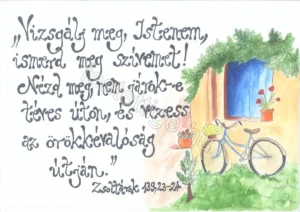 „Vizsgálj meg, Istenem,
ismerd meg szívemet!
Nézd meg, nem járok-e
téves úton, és vezess
az örökkévalóság
útján."
Zsoltárok 139,23-24